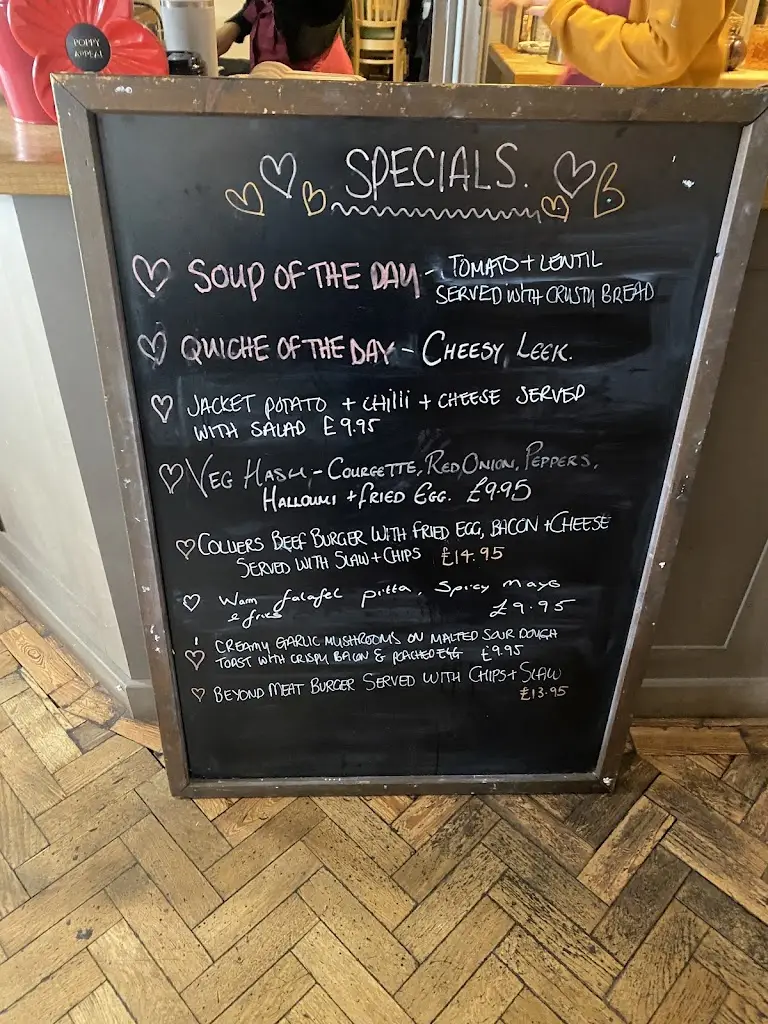 POPPY
APPEAL
SPECIALS.
SOUP OF THE DAY - TOMATO + LENTIL
SERVED WITH CRUSTY BREAD
QUICHE OF THE DAY - CHEESY LEEK.
JACKET POTATO + CHilli + CHEESE SERVED
WITH SALAD £9.95
VEG HASH - COURGETTE, RED ONION, PEPPERS,
HALLOUMI + FRIED EGG. £9.95
COLLIERS BEEF BURGER WITH FRIED EGG, BACON + CHEESE
SERVED WITH SLAW + CHIPS £14.95
Warm falafel pitta, Spicy mayo
& fries £9.95
CREAMY GARLIC MUSHROOMS ON MALTED SOUR DOUGH
TOAST WITH CRISPY BACON & POACHED EGG £9.95
BEYOND MEAT BURGER SERVED WITH CHIPS + SLAW
£13.95